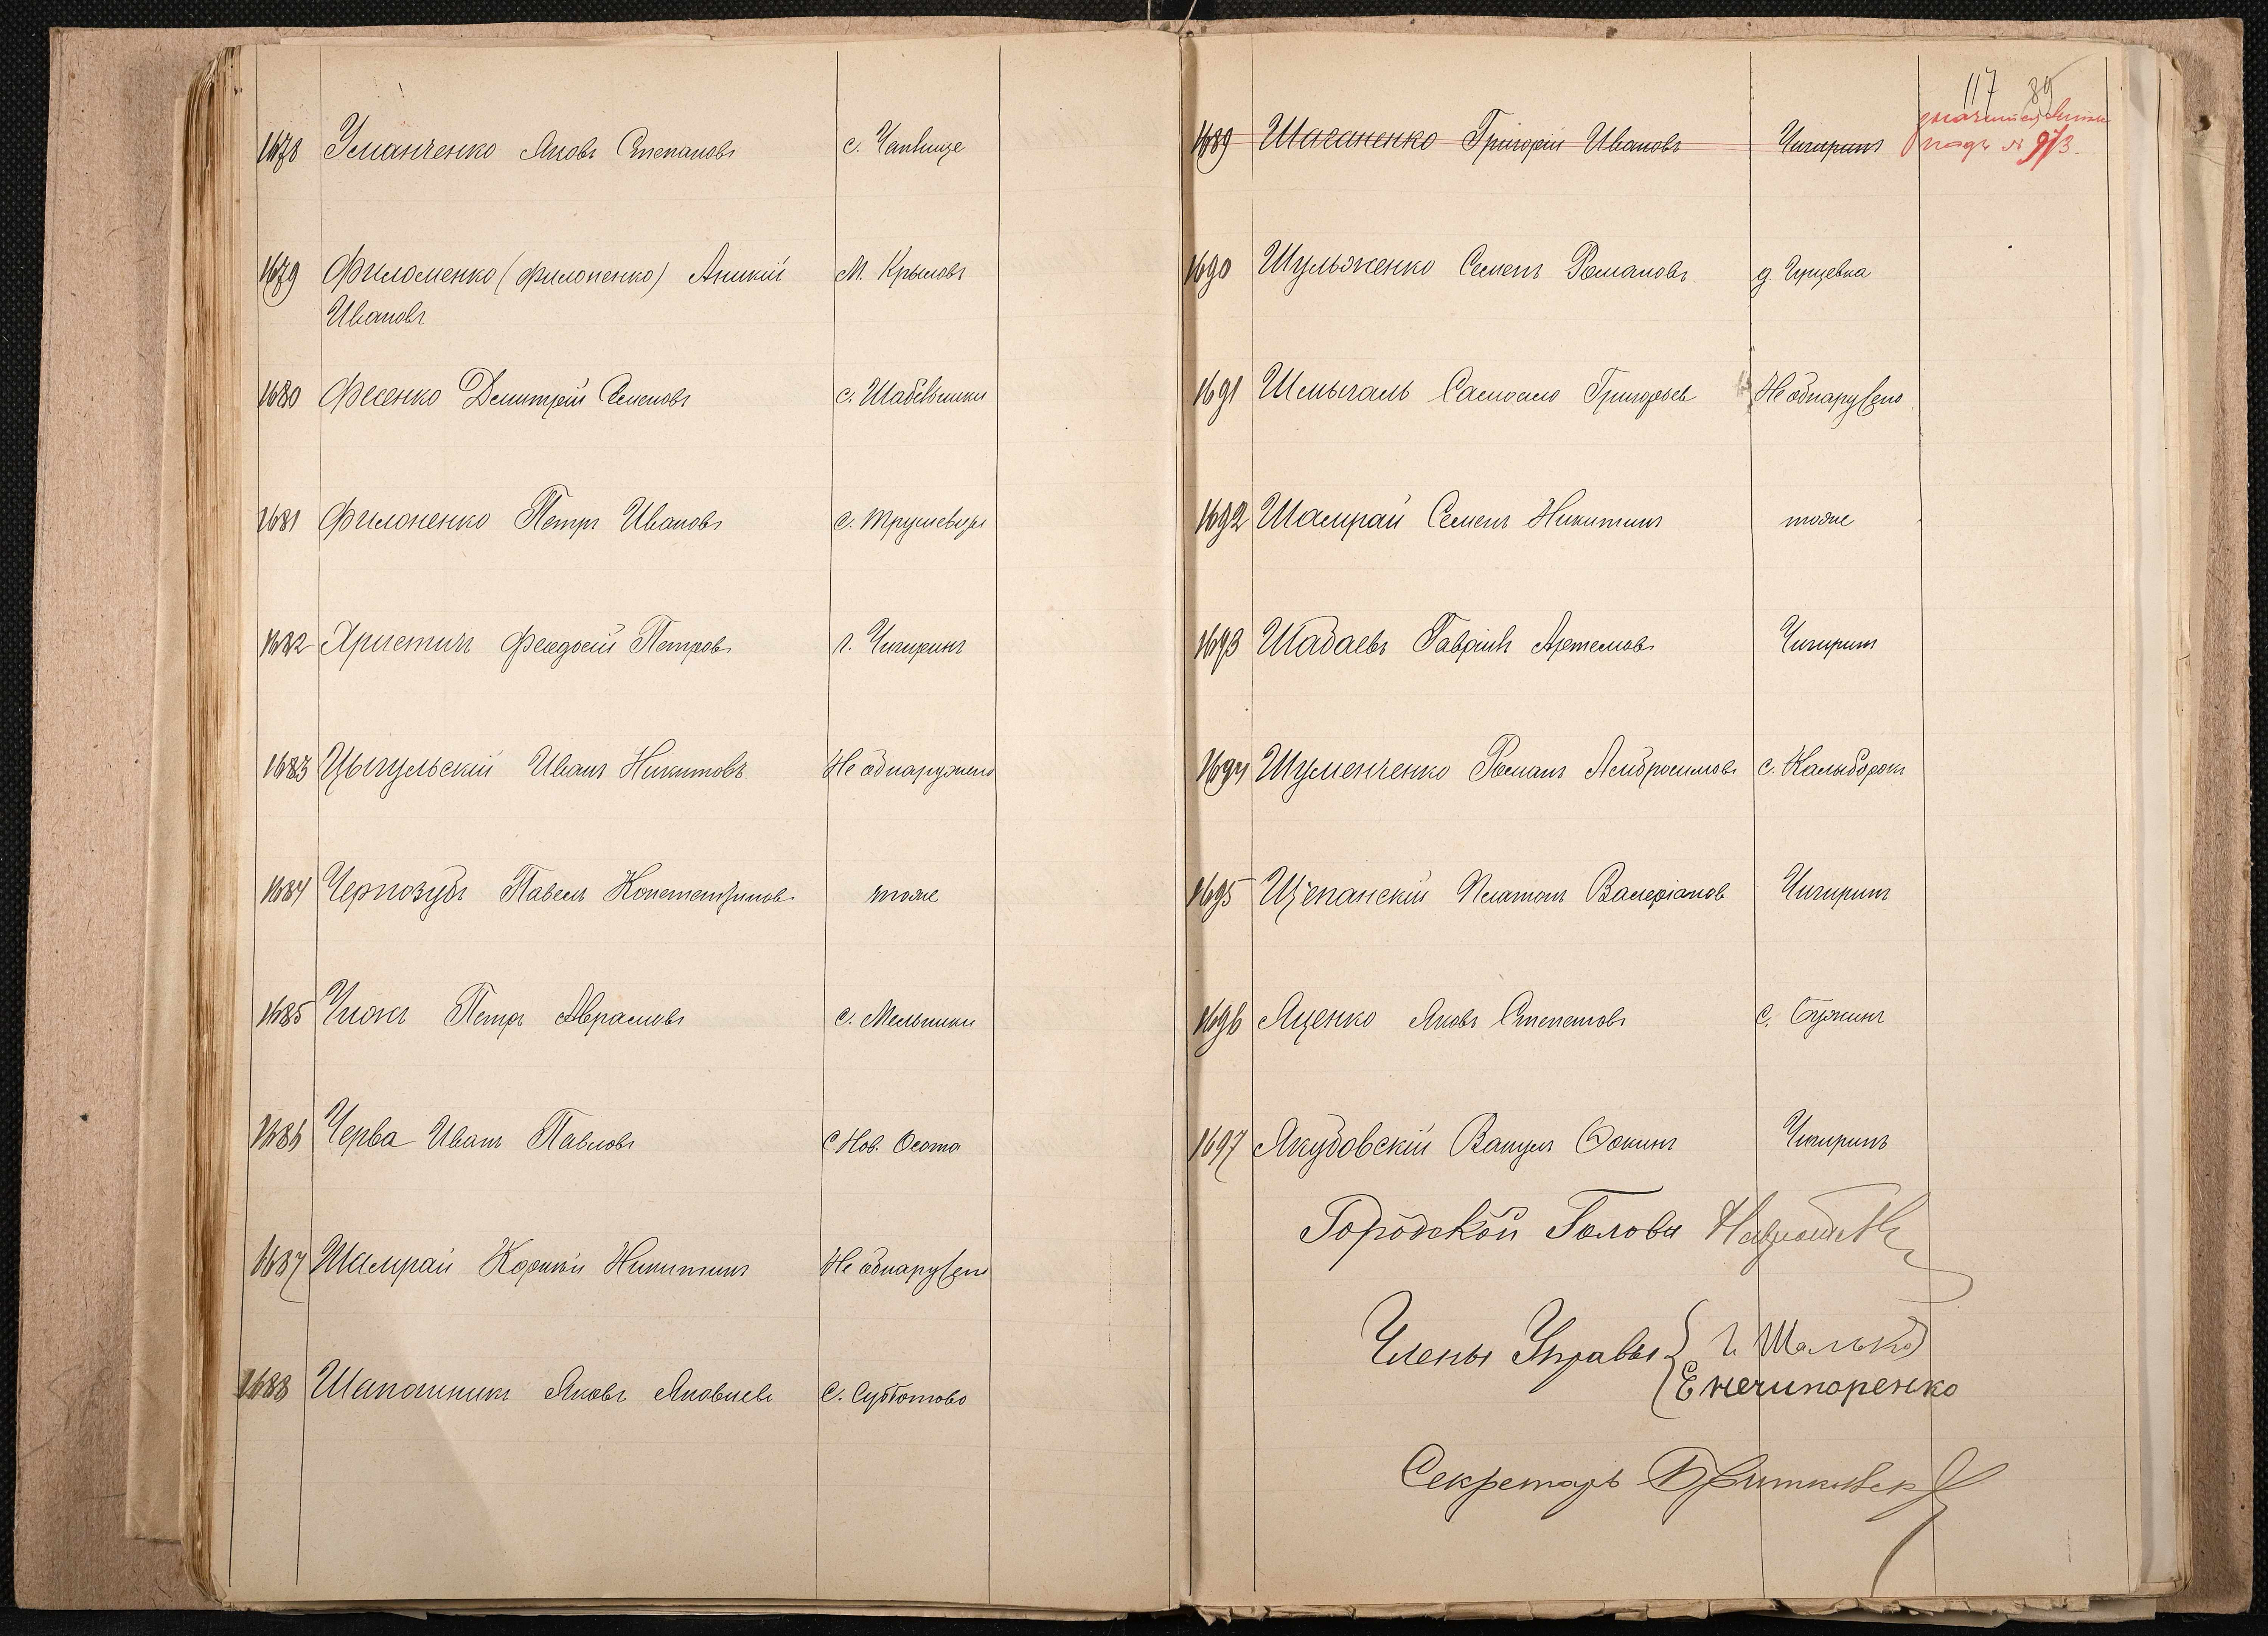 1678 Уманченко Яковъ Степановъ с.
1679 Филоменко (Филоненко) Аникій М. Крыловъ
Ивановъ
1680 Фесенко Дмитрій Семеновъ с. Шабельники
1681 Филоненко Петръ Ивановъ с. Трушевцы
1682 Христичъ Феодосій Петровъ г. Чигиринъ
1683 Цыгульскій Иванъ Никитовъ Не обнаружено
1684 Чернозубъ Павелъ Константиновъ тоже
1685 Чижъ Петръ Аврамовъ с. Мельники
1686 Черва Иванъ Павловъ С Нов. Осота
1687 Шамрай Корній Никитинъ Не обнаружено
1688 Шапошникъ Яковъ Яковлевъ С. Субботово
117 89
1689 Григорій Ивановъ Чигиринъ
подъ № 973.
1690 Шульженко Семенъ Романовъ д.
1691 Шмыгаль Григорьевъ Не обнаружено
1692 Шамрай Семенъ Никитинъ тоже
1693 Шадаевъ Гавріилъ Артемовъ Чигиринъ
1694 Шуменченко Романъ Амбросимовъ с. Калыборокъ
1695 Щепанскій Платонъ Валеріановъ Чигиринъ
1696 Яценко Яковъ Степановъ С. Бужинъ
1697 Якубовскій Чигиринъ
Городской Голова
Члены Управы Г. Шалько
Е Нечипоренко
Секретарь